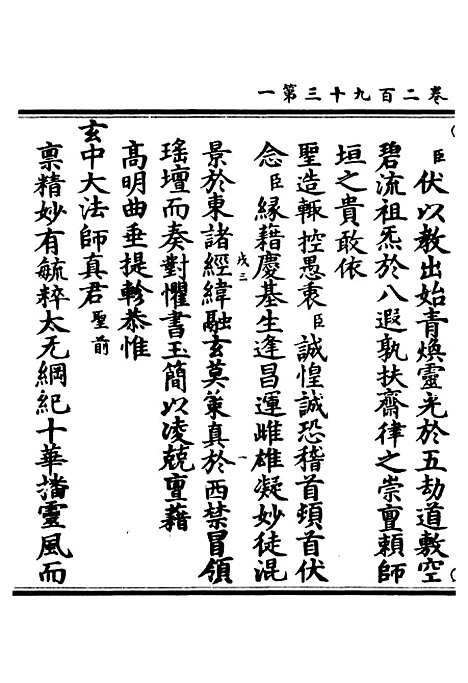 卷二百九十三第一
臣伏以教出始青煥靈光於五劫道敷空
碧流祖炁於八遐孰扶齋律之崇亶賴師
垣之貴敢依
聖造輒控愚衷臣誠惶誠恐稽首頓首伏
念臣緣藉慶基生逢昌運雌雄凝妙徒混
景於東諸經緯融玄莫兼真於西禁冒領
戌三 一
瑤壇而奏對懼書玉簡以凌兢亶藉
高明曲垂提軫恭惟
玄中大法師真君聖前
稟精妙有毓粹太无綱紀十華播靈風而